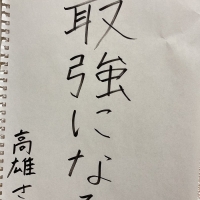 最強になる
高雄さ